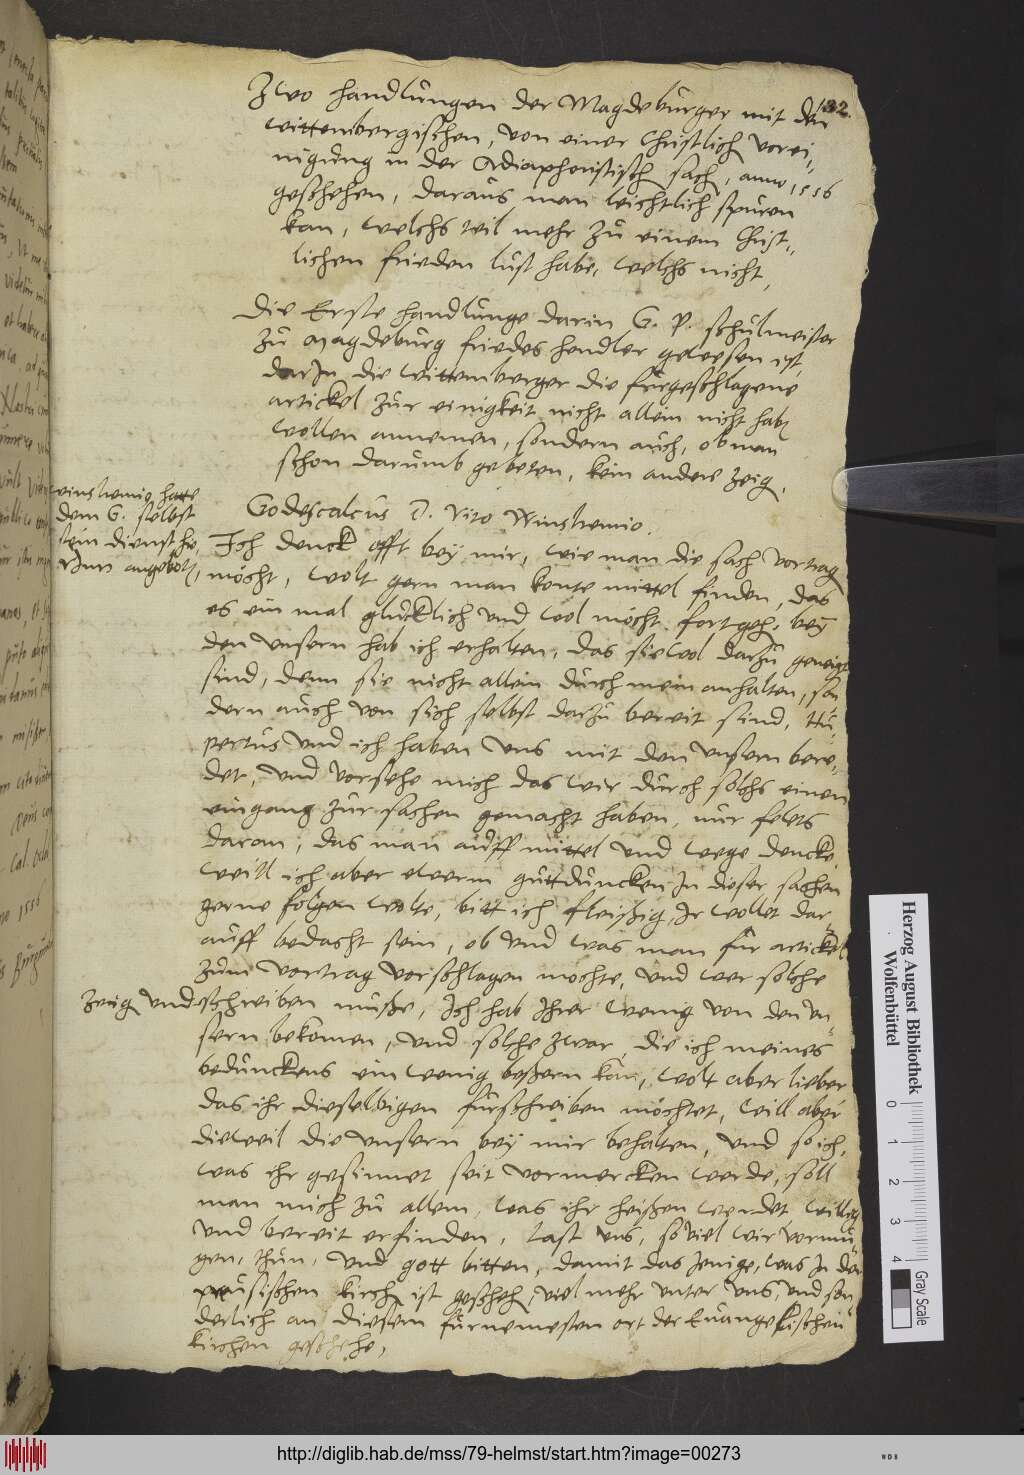 132.
Zwo handlungen der Magdeburger mit den
wittembergischen, von einer Christlich vorei-
nigung in der Adiaphoristisch sach, anno 1556
geschehen, daraus man leichtlich spuren
kan, welchs teil mehr zu einem Christ-
lichen frieden lust habe, welchs nicht,
Die Erste handlunge darin G. P. schulmeister
zu Magdeburg friedes hendler gewesen ist,
darIn die Wittemberger die fürgeschlagene
artickel zur einigkeit nicht allein nicht hab
wollen annemen, sondern auch, ob man
schon darumb gebeten, kein andere zeig,
Godescalcus D. Vito Winshemio.
Winshemio hatte
dem G. selbst
sein dienst
angebot,
Ich denck offt bey mir, wie man die sach vortrag
möcht, wolt gern man konte mittel finden, das
es ein mal glucklich und wol möcht fortgeh, bey
den unsern hab ich erhalten, das sie wol darzu geneigt
sind, denn sie nicht allein durch mein anhalten, son
dern auch von sich selbst darzu bereit sind, Hu-
pertus und ich haben uns mit den unsern bere-
det, und vorsehe mich das wir durch solchs einen
eingang zur sachen gemacht haben, nur felets
daran, das man auff mittel und wege dencke,
Weill ich aber ewerm gutduncken In dieser sachen
gerne folgen wolte, bitt ich fleißig, Ir wollet dar-
auff bedacht sein, ob und was man für artickel
zum vortrag vorschlagen möchte, und wer solche
zeig und schreiben muße, Ich hab Ihrer wenig von den un-
sern bekomen, und solche zwar, die ich meines
bedunckens ein wenig beßern kan, wolt aber lieber
das ihr dieselbigen fürschreiben möchtet, will aber
dieweil die unsern bey mir behalten, und so ich,
was ihr gesinnet seit vormercken werde, soll
man mich zu allem, was ihr heißen werdet willig
und bereit erfinden, Last uns, so viel wir vormu-
gen, thun, und gott bitten, damit das Jenige, was In der
preusischen kirch ist gescheh, viel mehr unter uns, und son-
derlich an diesem fürnemesten ort der Euangelischen
kirchen geschehe,
Herzog August Bibliothek
Wolfenbüttel
0 1 2 3 4
Gray Scale
http://diglib.hab.de/mss/79-helmst/start.htm?image=00273